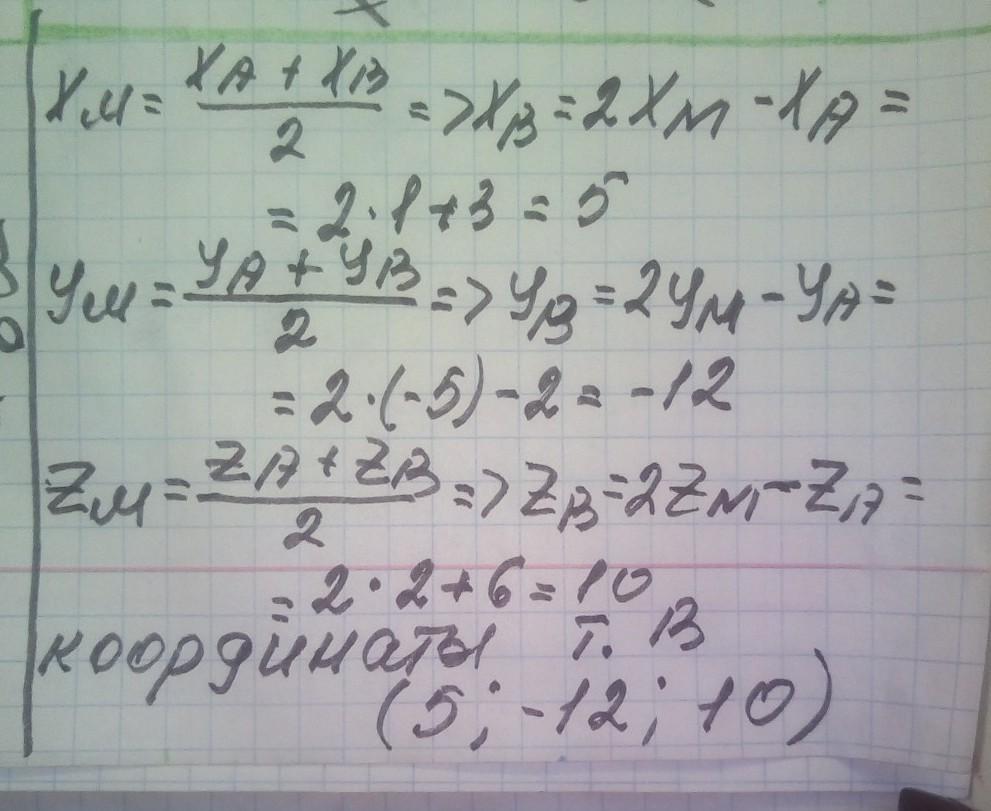 Xм = (XA + XB)/2 => XB = 2XM - XA =
= 2·1+3 = 5
Yм = (YA + YB)/2 => YB = 2YM - YA =
= 2·(-5) - 2 = -12
Zм = (ZA + ZB)/2 => ZB = 2ZM - ZA =
= 2·2+6 = 10
координаты т. B
(5; -12; 10)